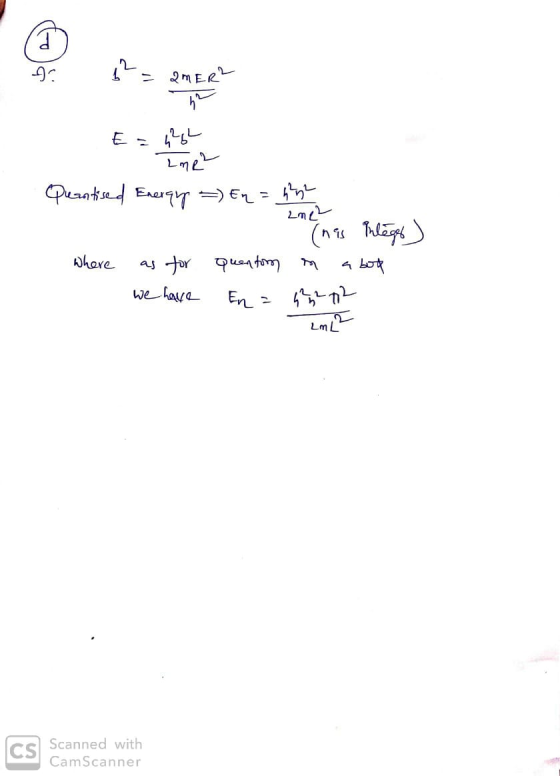 d
b² = 2mER²
ħ²
E = ħ²b²
2mR²
Quantised Energy ⇒ En = ħ²n²
2mR²
(n is Integer)
Where as for quantom in a box
we have En = ħ²n²π²
2mL²
CS Scanned with
CamScanner